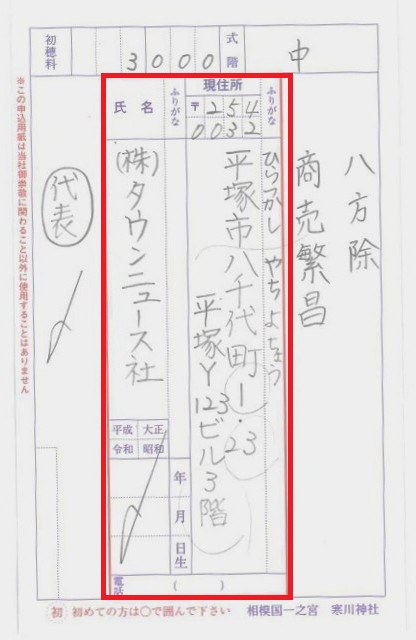 中
八方除
商売繁昌
式階
3000
初穂料
現住所
〒254
0032
ふりがな
ひらつかし やちよちょう
平塚市八千代町1・23
平塚Y123ビル3階
ふりがな
氏名
(株)タウンニュース社
平成 大正
令和 昭和
年
月
日生
電話
( )
代表
※この申込用紙は当社御祭敬に関わること以外に使用することはありません
初 初めての方は○で囲んで下さい 相模国一之宮 寒川神社